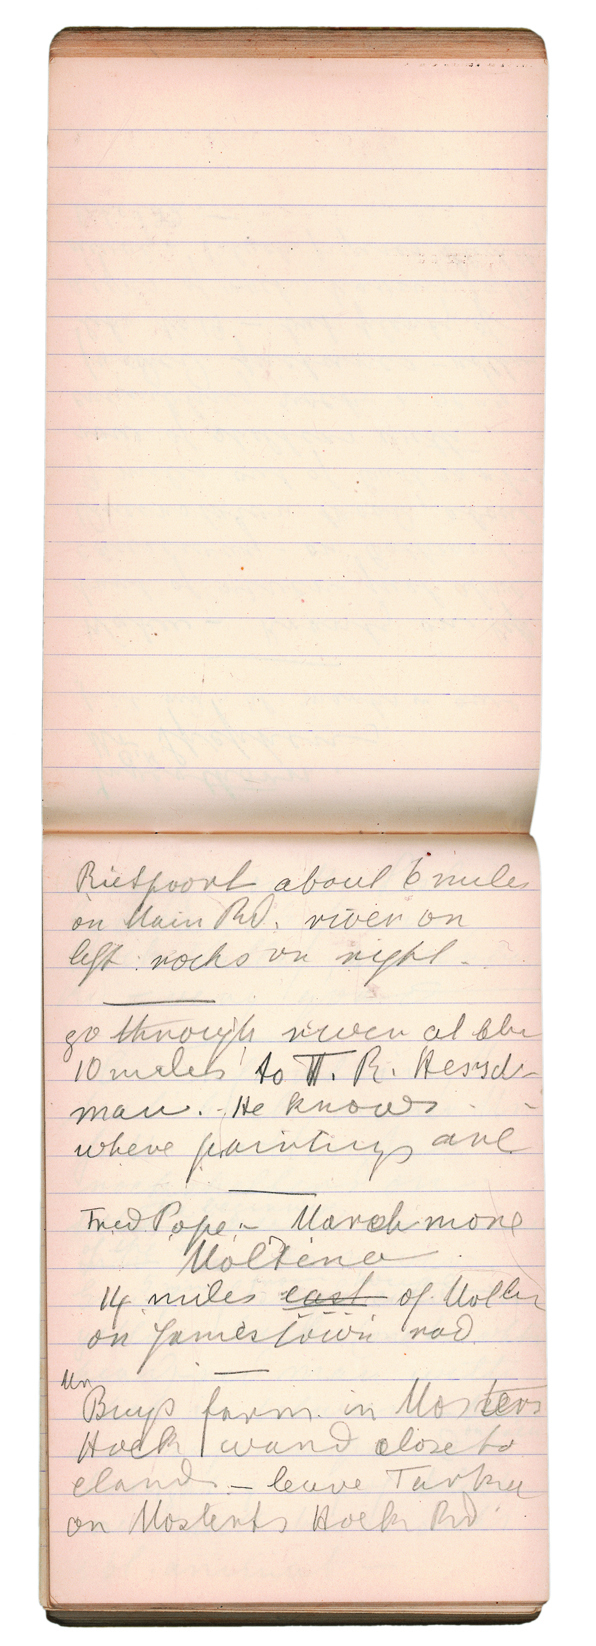 Rietpoort about 6 miles
on Main Rd. river on
left rocks on right -
go through river at the
10 miles to H. R. Heyde-
man. - He knows
where paintings are
Fred Pope - Marchmore
Molteno
14 miles east of Molten
on Jamestown rod
Mr
Buys farm in Mosterts
Hoek
close to
elands - leave Tarka
on Mosterts Hoek Rd